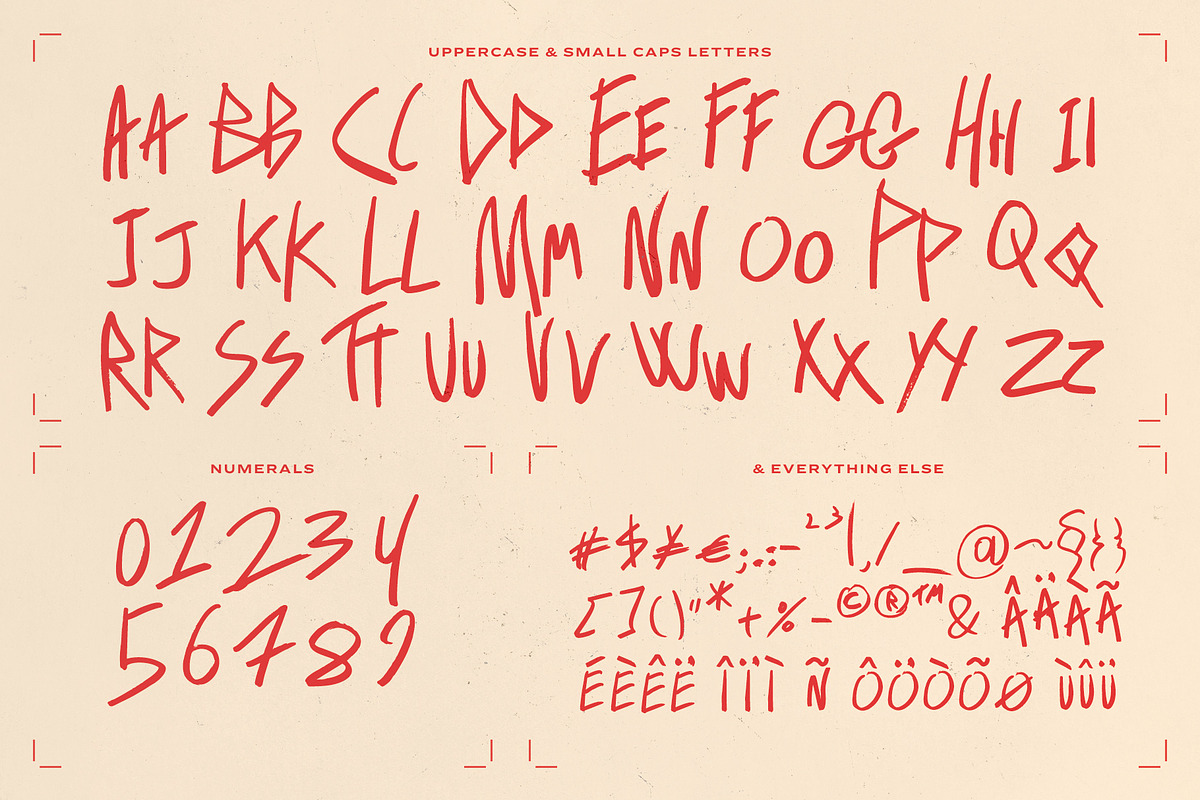 UPPERCASE & SMALL CAPS LETTERS
AA BB CC DD EE FF GG HH II
JJ KK LL MM NN OO PP QQ
RR SS TT UU VV WW XX YY ZZ
NUMERALS
01234
56789
& EVERYTHING ELSE
#$¥€;..:-²³|,/_@~§{}
[]()"*+%-©®™&ÂÄÀÃ
ÉÈÊË ÎÏÌ Ñ ÔÖÒÕØ ÙÛÜ